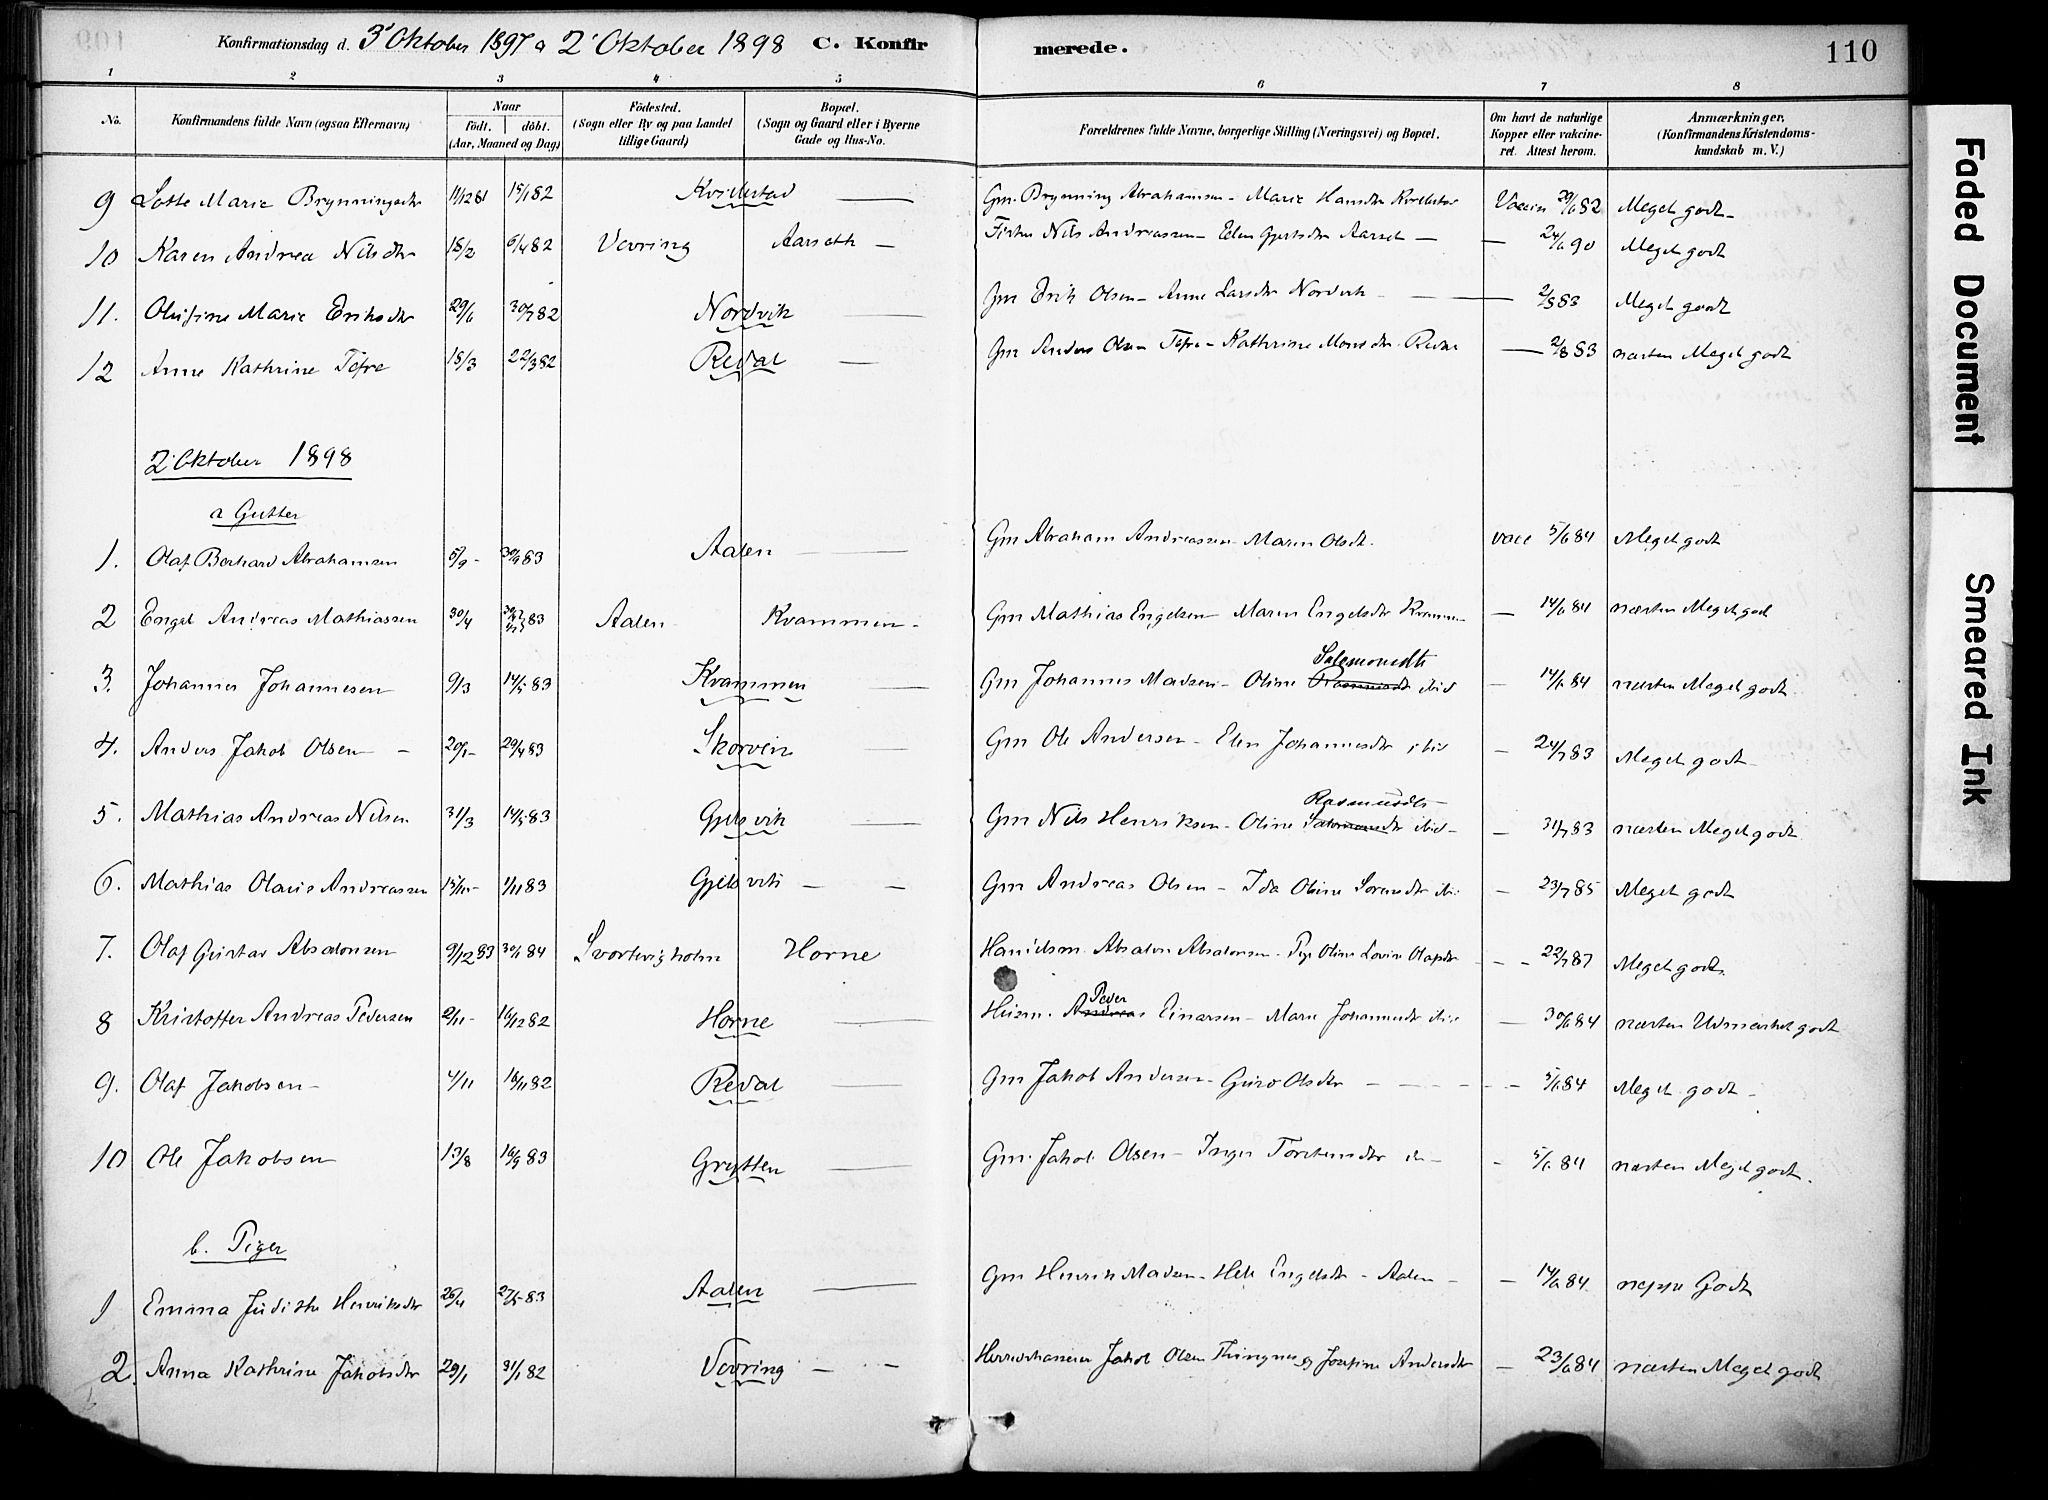 Konfirmationsdag d. 3' Oktober 1897 a 2' Oktober 1898 C. Konfirmerede. 110
1 2 3 4 5 6 7 8
No. Konfirmandens fulde Navn (ogsaa Efternavn) Naar födt. döbt. (Aar, Maaned og Dag) Födested. (Sogn eller By og paa Landet tillige Gaard) Bopæl. (Sogn og Gaard eller i Byerne Gade og Hus-No. Forældrenes fulde Navne, borgerlige Stilling (Næringsvei) og Bopæl. Om havt de naturlige Kopper eller vakcineret. Attest herom. Anmærkninger, (Konfirmandens Kristendomskundskab m. V.)
9 Lotte Marie Brynningsdtr 11/12 81 15/1 82 Kvellestad — Gm. Brynning Abrahamsen - Marie Hansdtr Vaccin 82 Meget godt -
10 Karen Andrea Nilsdtr 18/2 6/4 82 Vevring Aarseth — Nils Andreassen - Elen Gjertsdtr Aarset — — 24/6 90 Meget godt
11. Olufine Marie Eriksdtr 29/6 30/7 82 Nordvik — Gm Erik Olsen - Anne Larsdtr Nordvik — 2/8 83 Meget godt
12 Anne Kathrine Tefre 18/3 22/3 82 Redal — Gm Anders Olsen Tefre - Kathrine Monsdtr Redal — 2/8 83 næsten Meget godt
2' Oktober 1898
a Gutter
1. Olaf Berhard Abrahamsen 5/9 - 30/9 83 Aalen — Gm Abraham Andreassen - Maren Olsdt. vacc 5/6 84 Meget godt
2 Engel Andreas Mathiassen 30/4 83 Aalen - Kvammen - Gm Mathias Engelsen - Maren Engelsdtr Kvammen — 14/6 84 næsten Meget godt
3. Johannes Johannesen 9/3 14/5 83 Kvammen — Gm Johannes Madsen - Oline Salomonsdtr ibid — 14/6 84 næsten Meget godt
4. Anders Jakob Olsen — 20/1 - 29/4 83 Skorven — Gm Ole Andersen - Elen Johannesdtr ibid — 24/7 83 Meget godt -
5. Mathias Andreas Nilsen 31/3 14/5 83 Gjelsvik — Gm Nils Henriksen - Oline Rasmusdtr ibid - — 31/7 83 næsten Meget godt
6. Mathias Olaus Andreassen 1/11 83 Gjelsvik — — Gm Andreas Olsen - Ida Oline Sorensdtr — 23/7 85 Meget godt
7. Olaf Gustav Absalonsen 9/12 83 30/1 84 Svortevigholm Horne Absalon Absalonsen - Pige Oline Lovise Olafsdtr - - 22/7 87 Meget godt.
8 Kristoffer Andreas Pedersen 2/11 - 16/12 82 Horne — Husm. Peder Einarsen - Marie Johannesdtr — 30/6 84 næsten Udmærket godt
9. Olaf Jakobsen - 4/11 16/11 82 Redal — Gm Jakob Andersen - Guro Olsdtr — — — 5/6 84 Meget godt -
10 Ole Jakobsen 13/8 16/9 83 Grytten — Gm. Jakob Olsen - Inger Torstensdtr - - 5/6 84 næsten Meget godt.
b. Piger
1 Emma Judithe Henriksdtr 26/4 27/5 83 Aalen — Gm Henrik Madsen - Hele Engelsdtr - Aalen - — 14/6 84 neppe Godt
2. Anna Kathrine Jakobsdtr 29/1 31/1 82 Vevring — — Jakob Olsen Thingnes og Josefine Andersdtr — 23/6 84 næsten Meget godt
Faded Document
Smeared Ink